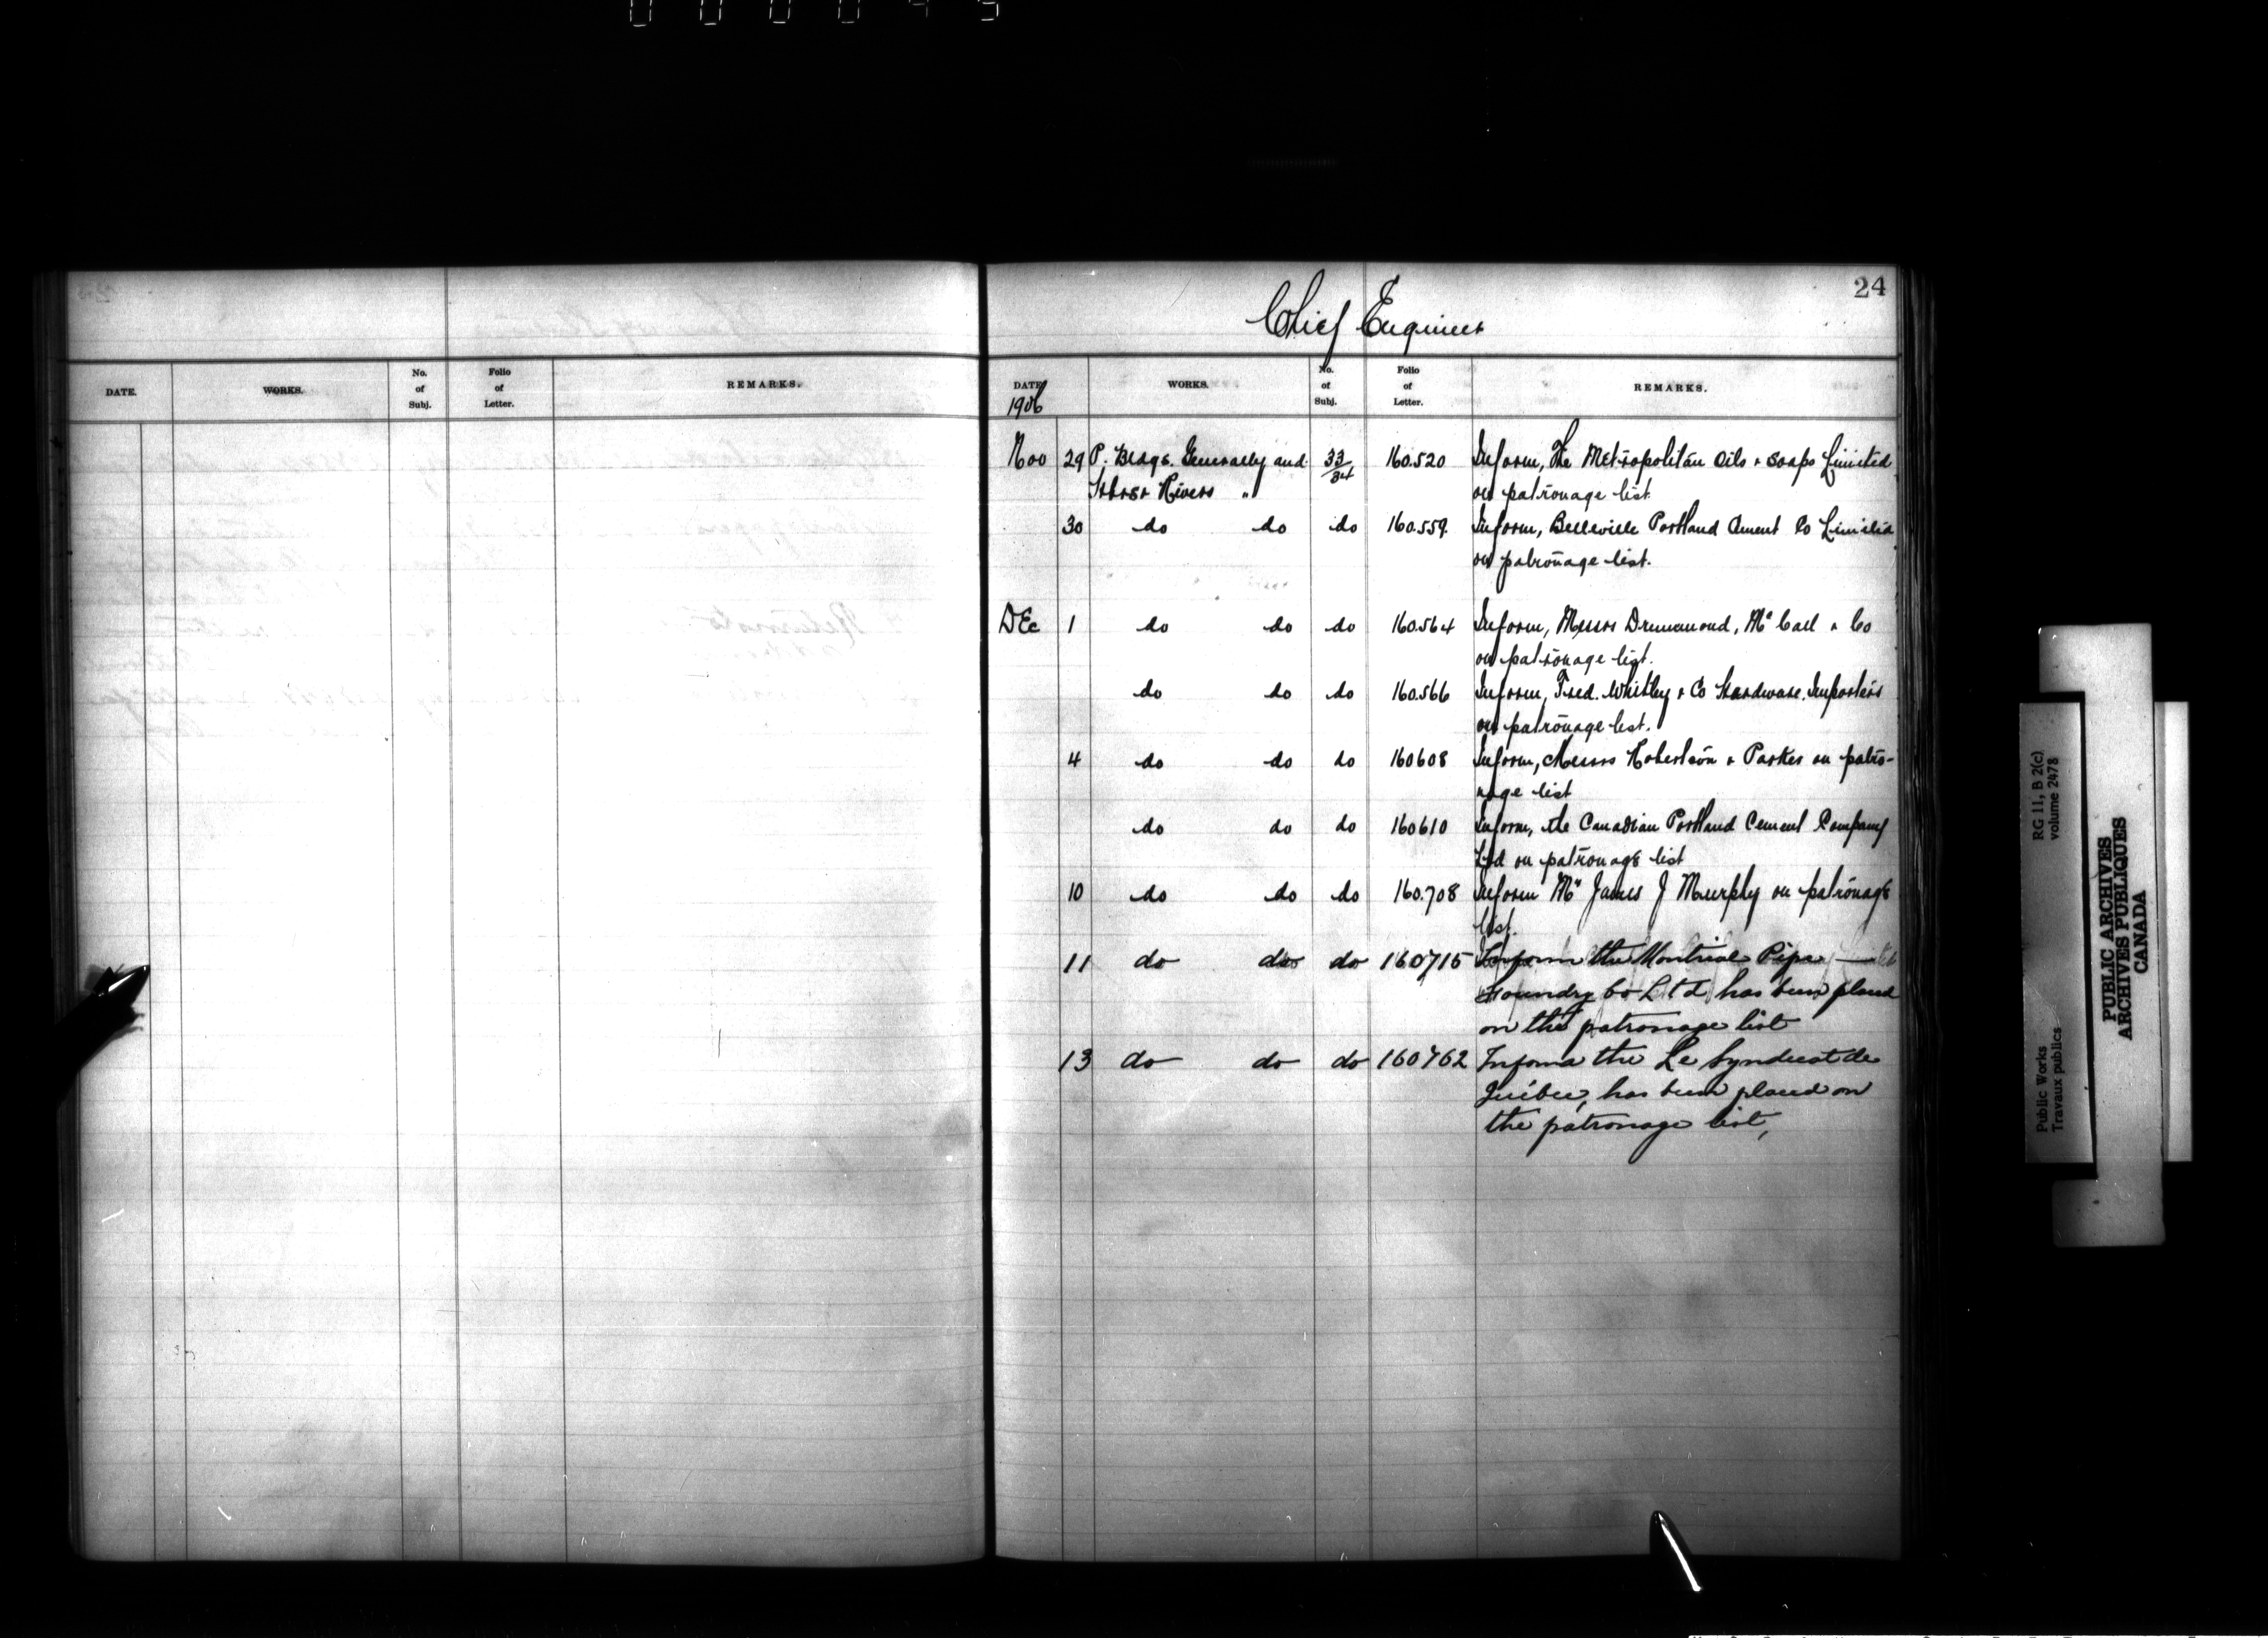 24
Chief Engineer
DATE. WORKS. No. of Subj. Folio of Letter. REMARKS.
DATE 1906 WORKS. No. of Subj. Folio of Letter. REMARKS.
Nov 29 P. Bldgs. Generally and 33/34 160.520 Inform, The Metropolitan Oils & Soaps Limited
Hbrs & Rivers " on patronage list.
30 do do do 160.559 Inform, Belleville Portland Cement Co Limited
on patronage list.
DEc 1 do do do 160.564 Inform, Messrs Drummond, Mc Call & Co
on patronage list.
do do do 160.566 Inform, Fred. Whitley & Co Hardware Importers
on patronage list.
4 do do do 160608 Inform, Messrs Robertson & Parkes on patro-
nage list
do do do 160610 Inform, the Canadian Portland Cement Company
Ltd on patronage list
10 do do do 160.708 Inform Mr James J Murphy on patronage
list.
11 do do do 160715 Inform the Montreal Pipe
Foundry Co Ltd has been placed
on the patronage list
13 do do do 160762 Inform the Le Syndicat de
Quebec, has been placed on
the patronage list,
RG 11, B 2(c)
volume 2478
Public Works
Travaux publics
PUBLIC ARCHIVES
ARCHIVES PUBLIQUES
CANADA